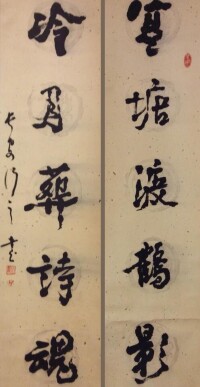 寒塘渡鶴影
冷月葬詩魂